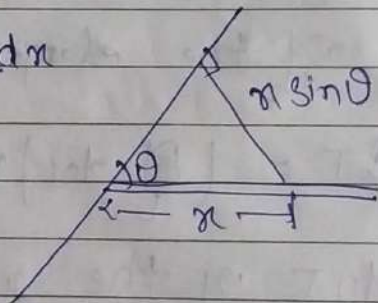 dx
x sinθ
θ
x